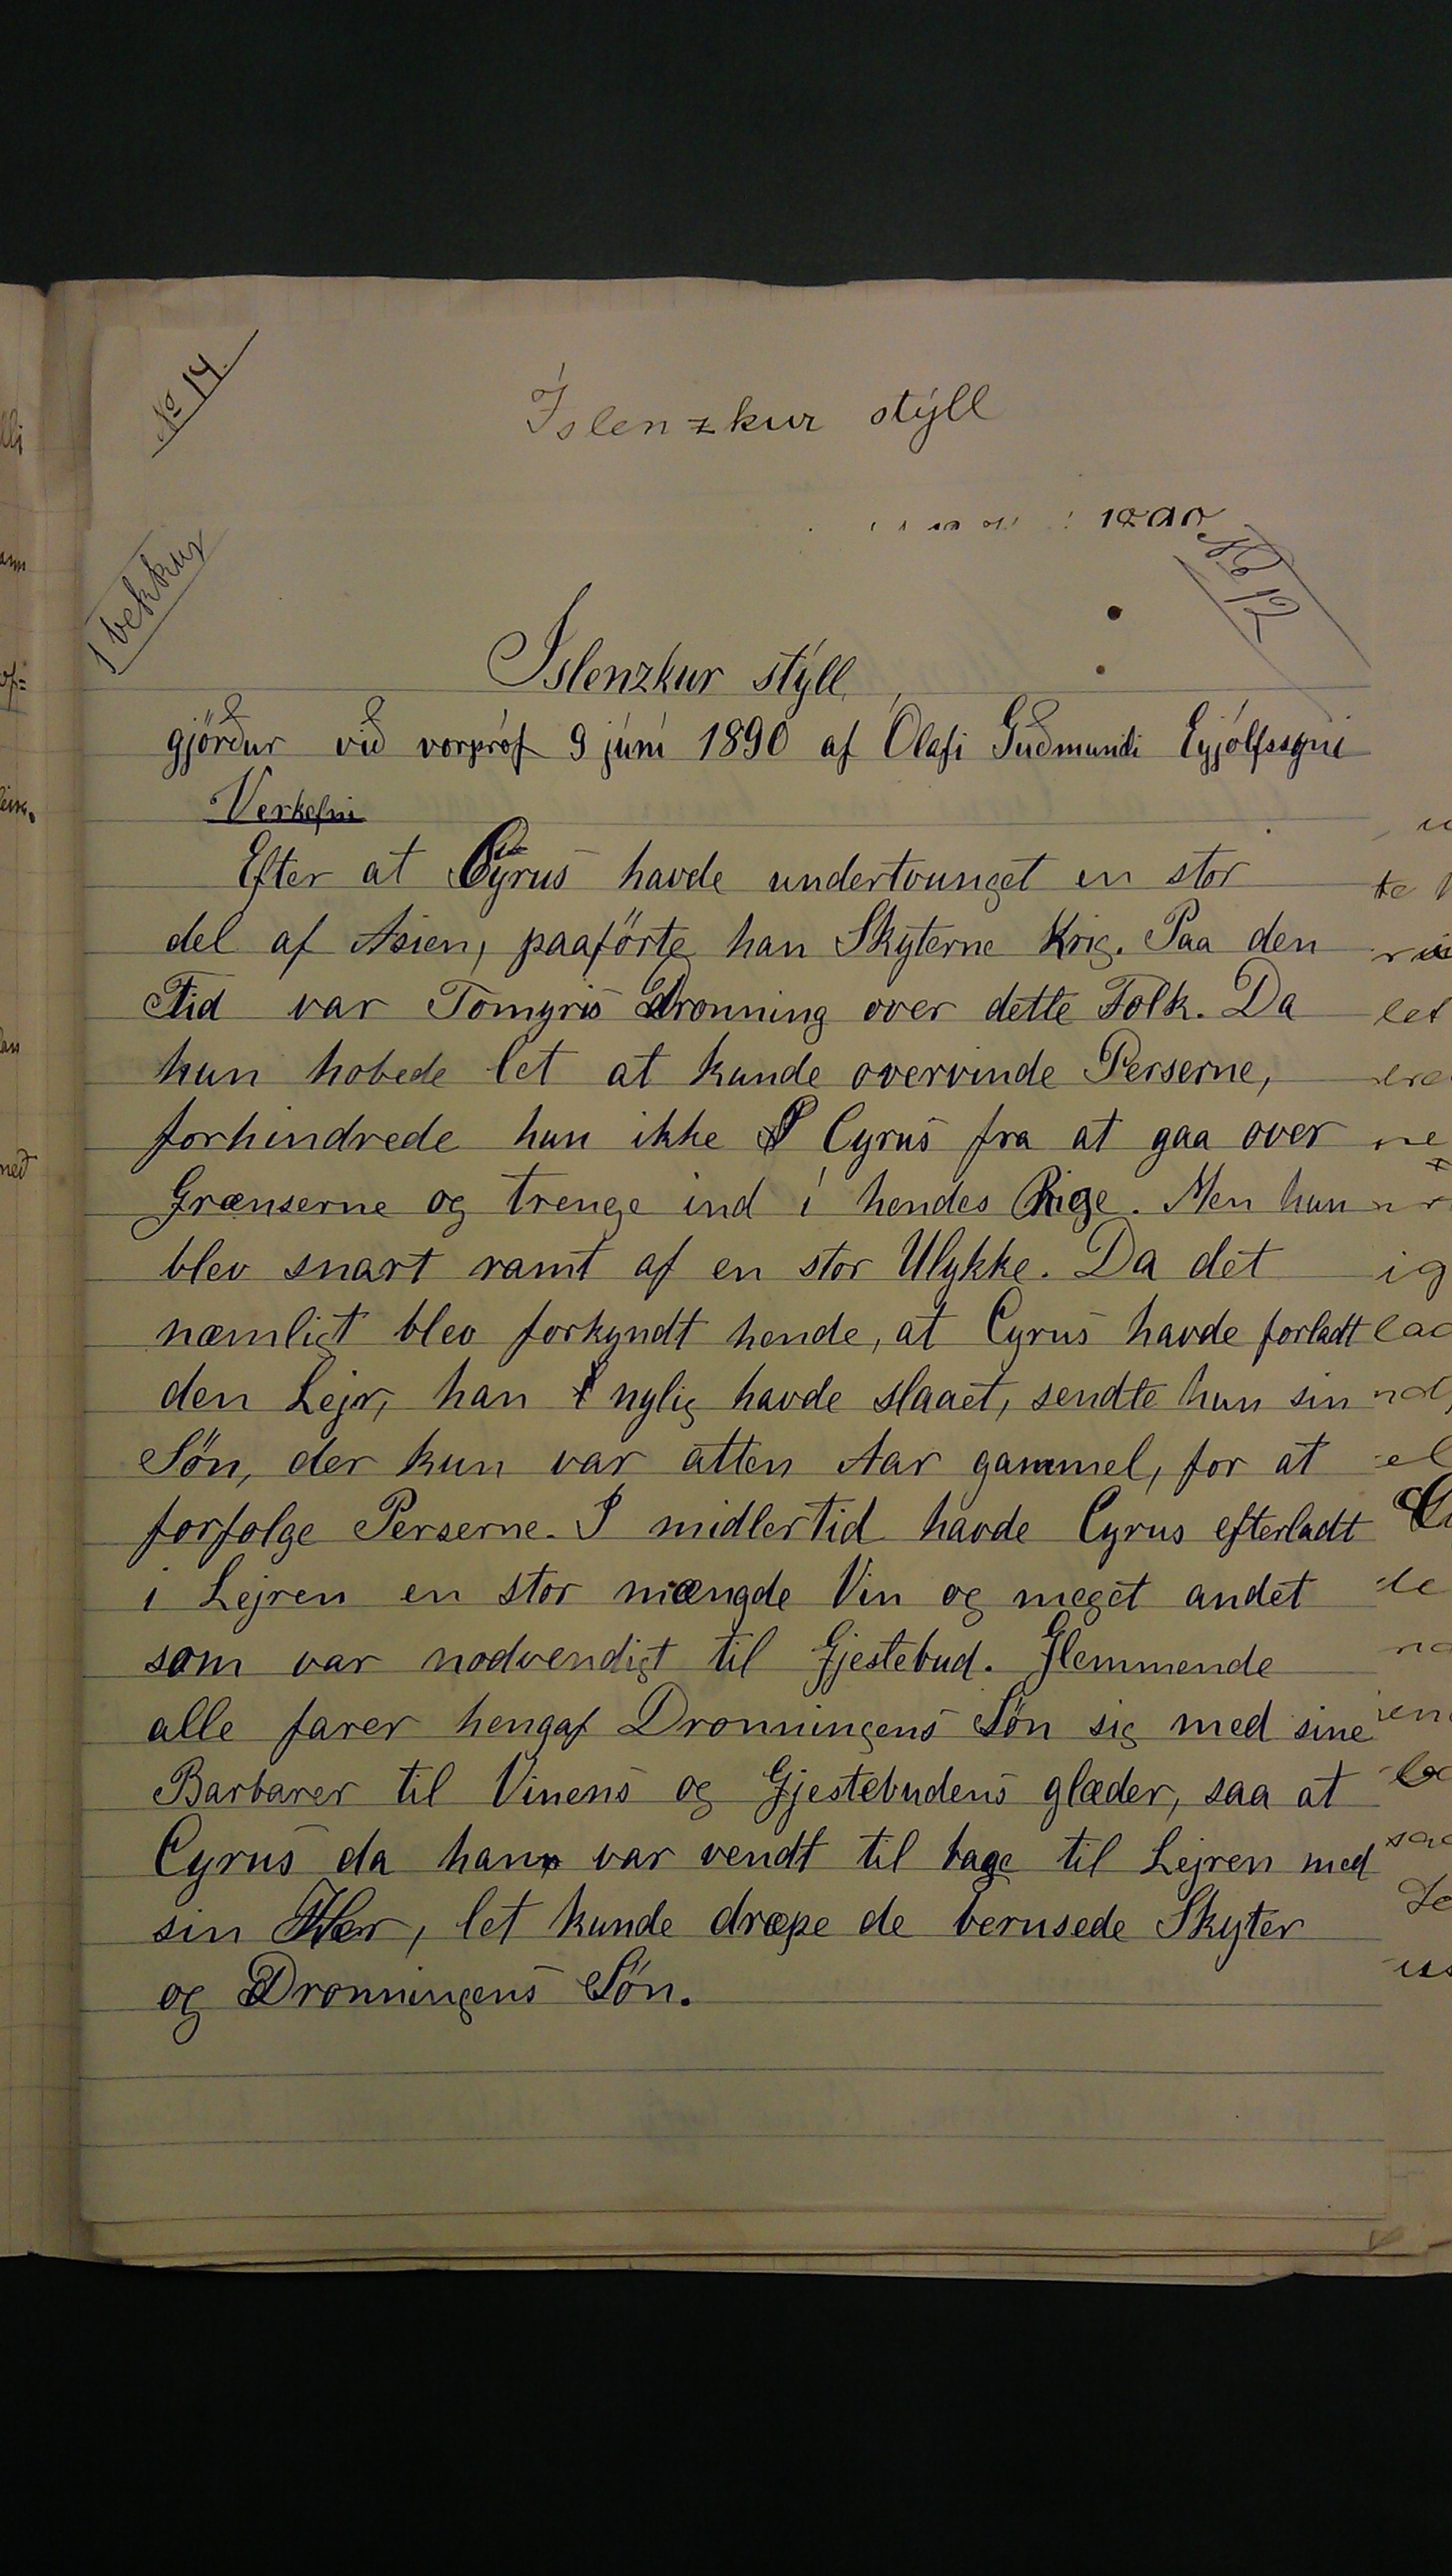 No 14.
Íslenzkur stýll
1 bekkur
No 12
Íslenzkur stýll
gjörður við vorpróf 9 júní 1890 af Ólafi Guðmundi Eyjólfssyni
Verkefni
Efter at Cyrus havde undertvunget en stor
del af Asien, paaförte han Skyterne Krig. Paa den
Tid var Tomyris Dronning over dette Folk. Da
hun hobede let at kunde overvinde Perserne,
forhindrede hun ikke Cyrus fra at gaa over
Grænserne og trenge ind i hendes Rige. Men hun
blev snart ramt af en stor Ulykke. Da det
næmligt blev forkyndt hende, at Cyrus havde forladt
den Lejr, han nylig havde slaaet, sendte hun sin
Sön, der kun var atten Aar gammel, for at
forfolge Perserne. I midlertid havde Cyrus efterladt
i Lejren en stor mængde Vin og meget andet
som var nodvendigt til Gjestebud. Glemmende
alle farer hengaf Dronningens Sön sig med sine
Barbarer til Vinens og Gjestebudens glæder, saa at
Cyrus da han var vendt til bage til Lejren med
sin Hær, let kunde dræpe de berusede Skyter
og Dronningens Sön.